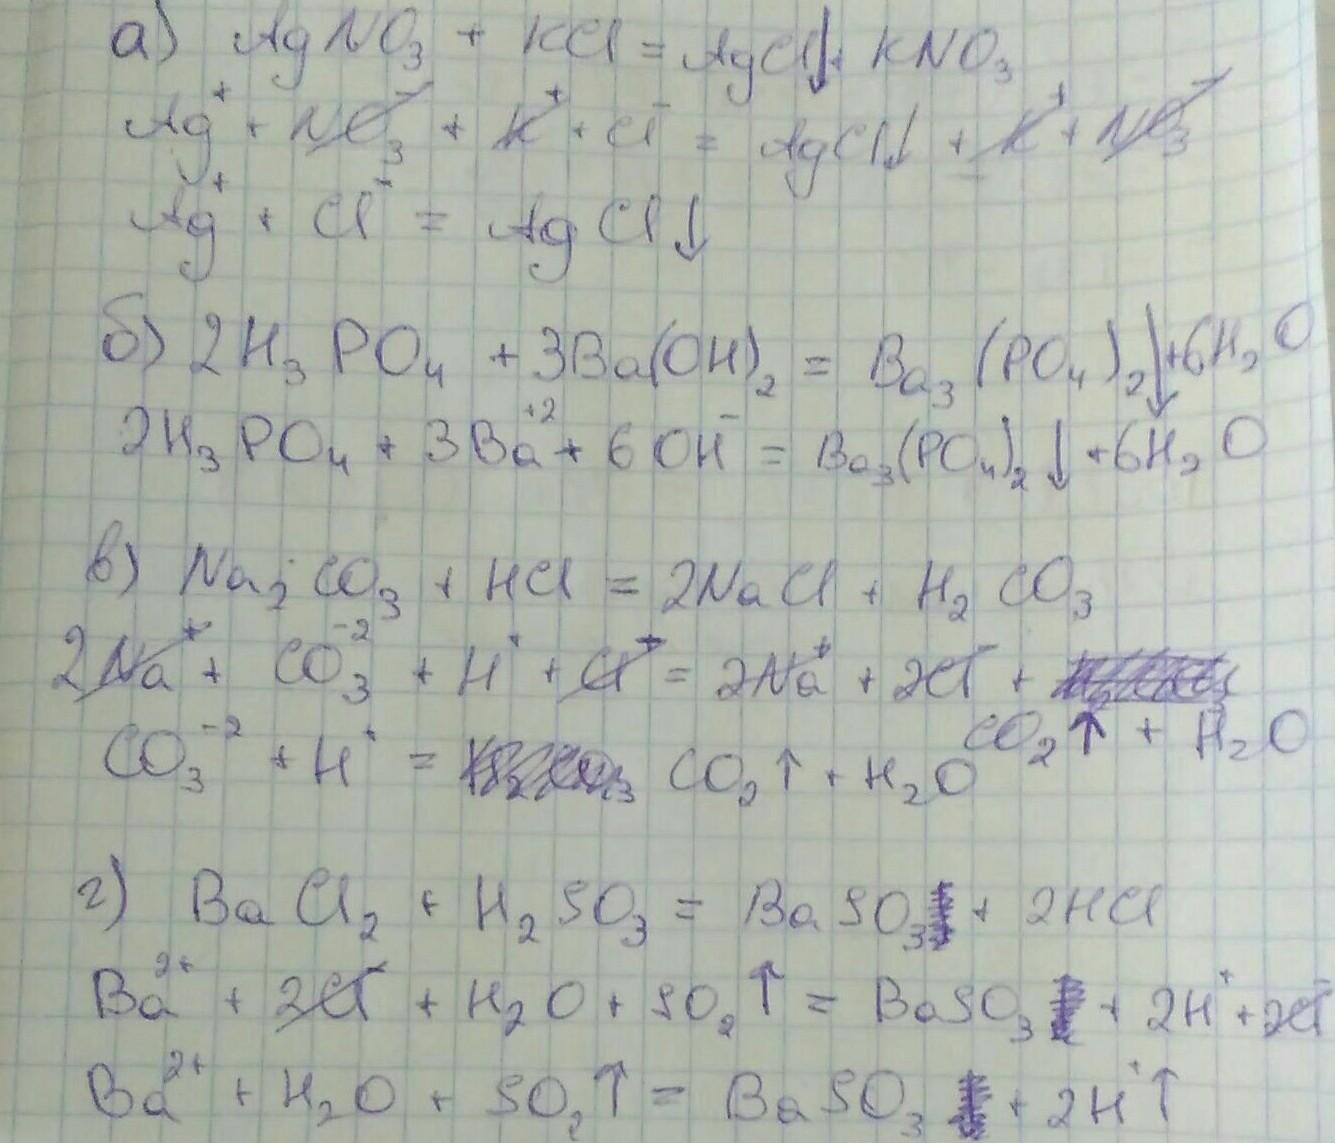 а) AgNO₃ + KCl = AgCl↓ + KNO₃
Ag⁺ + NO₃⁻ + K⁺ + Cl⁻ = AgCl↓ + K⁺ + NO₃⁻
Ag⁺ + Cl⁻ = AgCl↓
б) 2H₃PO₄ + 3Ba(OH)₂ = Ba₃(PO₄)₂↓ + 6H₂O
2H₃PO₄ + 3Ba⁺² + 6OH⁻ = Ba₃(PO₄)₂↓ + 6H₂O
в) Na₂CO₃ + HCl = 2NaCl + H₂CO₃
2Na⁺ + CO₃⁻² + H⁺ + Cl⁺ = 2Na⁺ + 2Cl⁻ +
CO₂↑ + H₂O
CO₃⁻² + H⁺ = CO₂↑ + H₂O
г) BaCl₂ + H₂SO₃ = BaSO₃ + 2HCl
Ba²⁺ + 2Cl⁻ + H₂O + SO₂↑ = BaSO₃ + 2H⁺ + 2Cl⁻
Ba²⁺ + H₂O + SO₂↑ = BaSO₃ + 2H⁺↑